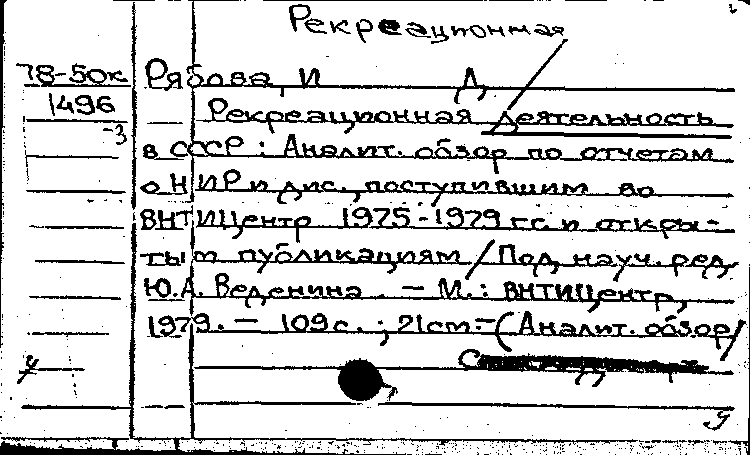 Рекреационная
78-50к Рябова, И Д
1496 Рекреационная деятельность
-3
в СССР : Аналит. обзор по отчетам
о НИР и дис., поступившим во
ВНТИЦентр 1975-1979 гг. и откры-
тым публикациям / Под науч. ред.
Ю.А. Веденина. — М.: ВНТИЦентр,
1979. — 109 с. ; 21 см. — (Аналит. обзор /